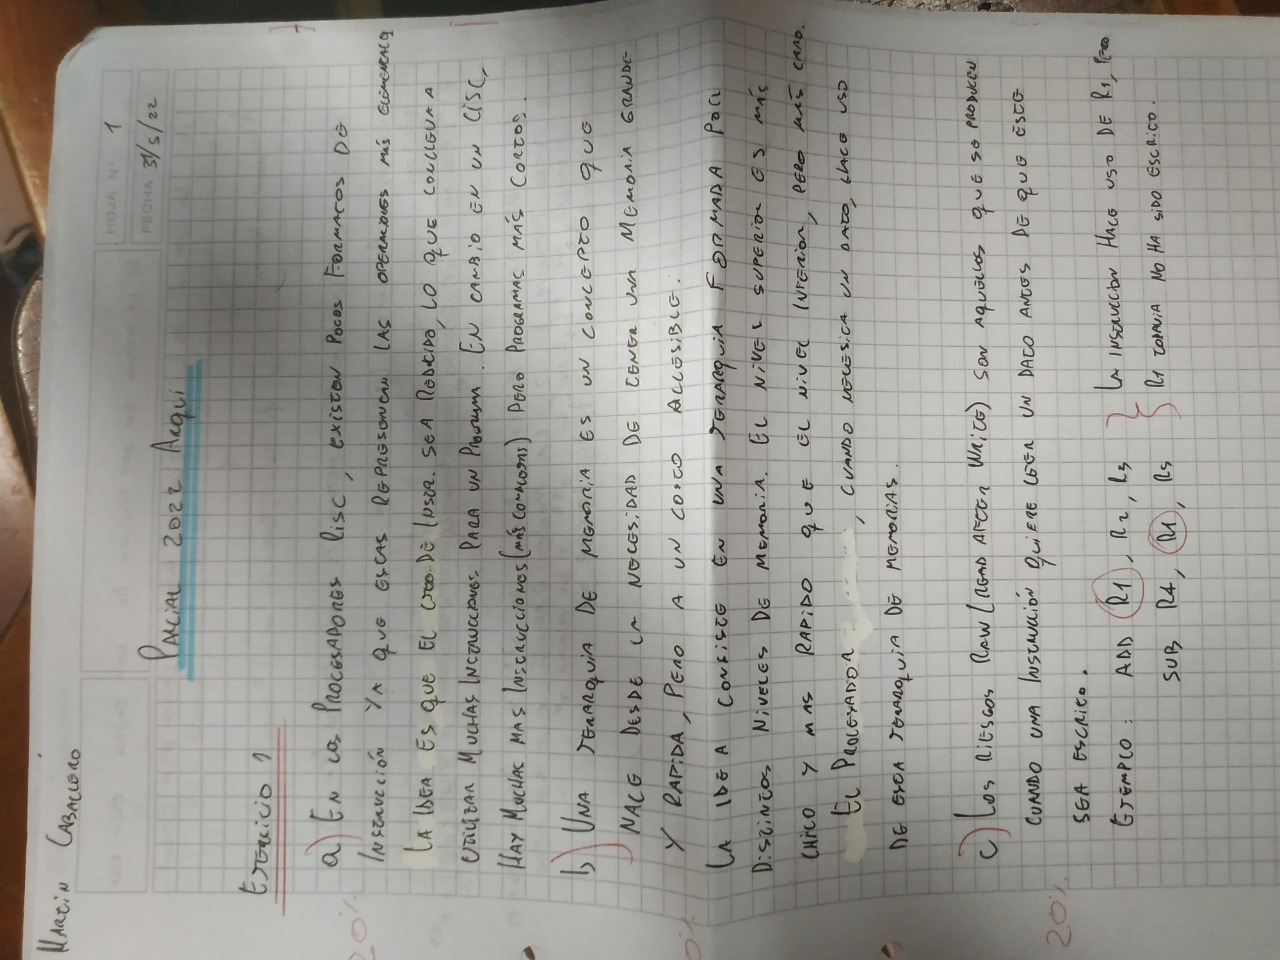 Martin Caballero
HOJA N° 1
FECHA 31/5/22
Parcial 2022 Arqui
Ejercicio 1
20%
a) En los procesadores RISC, existen pocos formatos de
instrucción ya que estas representan las operaciones más elementales
La idea es que el de instr. sea reducido, lo que conlleva a
utilizar muchas instrucciones para un programa. En cambio en un CISC,
hay muchas mas instrucciones (más complejas) pero programas más cortos.
b) Una jerarquia de memoria es un concepto que
nace desde la necesidad de tener una memoria grande
y rapida, pero a un costo accesible.
0%
La idea consiste en una jerarquia formada por
distintos niveles de memoria. El nivel superior es más
chico y mas rapido que el nivel inferior, pero más caro.
El procesador, cuando necesita un dato, hace uso
de esta jerarquia de memorias.
c) Los riesgos RAW (Read After Write) son aquellos que se producen
cuando una instrucción quiere leer un dato antes de que éste
20%
sea escrito.
Ejemplo: ADD R1, R2, R3 } La instruccion hace uso de R1, pero
SUB R4, R1, R5 } R1 todavia no ha sido escrito.